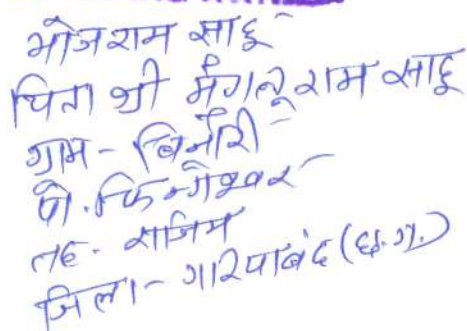 भोजराम साहू
पिता श्री मंगलू राम साहू
ग्राम - बिनौरी
पो. फिंगेश्वर
तह. राजिम
जिला - गरियाबंद (छ.ग.)